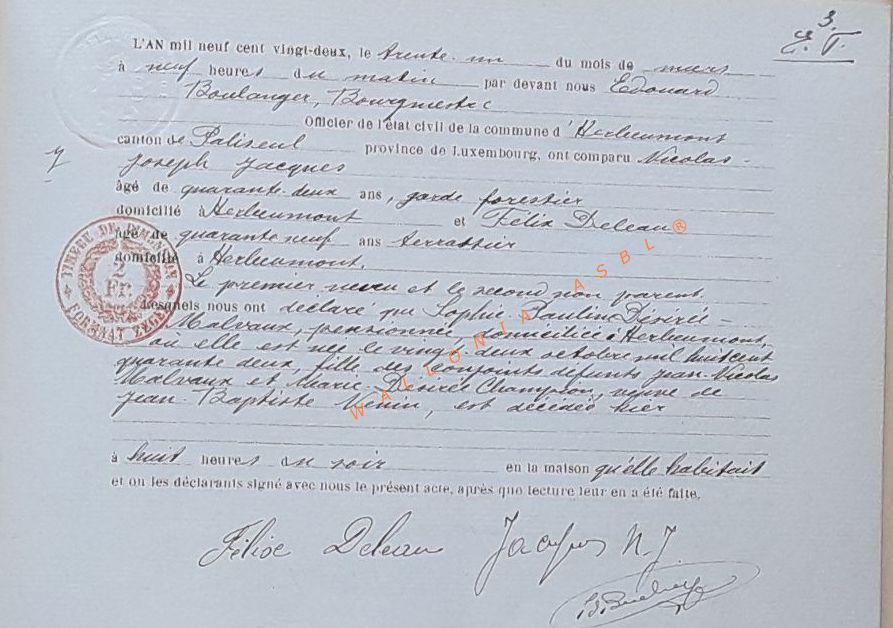 3.
L'AN mil neuf cent vingt-deux, le trente-un du mois de mars
à neuf heures du matin par devant nous Edouard
Boulanger, Bourgmestre
Officier de l'état civil de la commune d'Herbeumont
canton de Paliseul province de Luxembourg, ont comparu Nicolas-
Joseph Jacques
âgé de quarante-deux ans, garde forestier
domicilié à Herbeumont et Félix Deleau
âgé de quarante neuf ans terrassier
domicilié à Herbeumont.
Le premier neveu et le second non parent.
Lesquels nous ont déclaré que Sophie-Pauline Désirée-
Malvaux, pensionnée, domiciliée à Herbeumont,
où elle est née le vingt-deux octobre mil huit cent
quarante deux, fille des conjoints défunts Jean-Nicolas
Malvaux et Marie-Désirée Champion, veuve de
Jean-Baptiste Nenin, est décédée hier
à huit heures du soir en la maison qu'elle habitait
et on les déclarants signé avec nous le présent acte, après que lecture leur en a été faite.
Félix Deleau Jacques N. J
TIMBRE DE DIMENSION
2
Fr.
WALLONIA ASBL ®